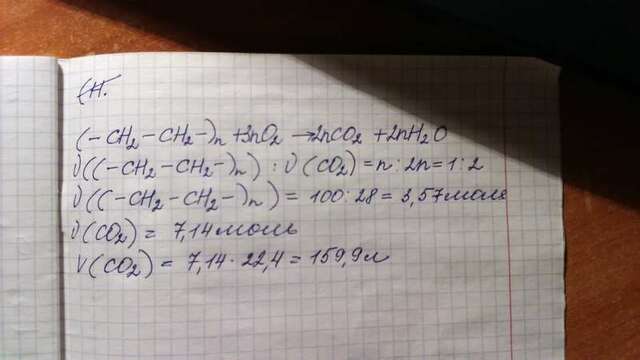 (-CH₂-CH₂-)n +3nO₂ →2nCO₂ +2nH₂O
ν((-CH₂-CH₂-)n) : ν(CO₂) = n:2n=1:2
ν((-CH₂-CH₂-)n) = 100:28 = 3,57моля
ν(CO₂) = 7,14моль
V(CO₂) = 7,14·22,4 = 159,9л